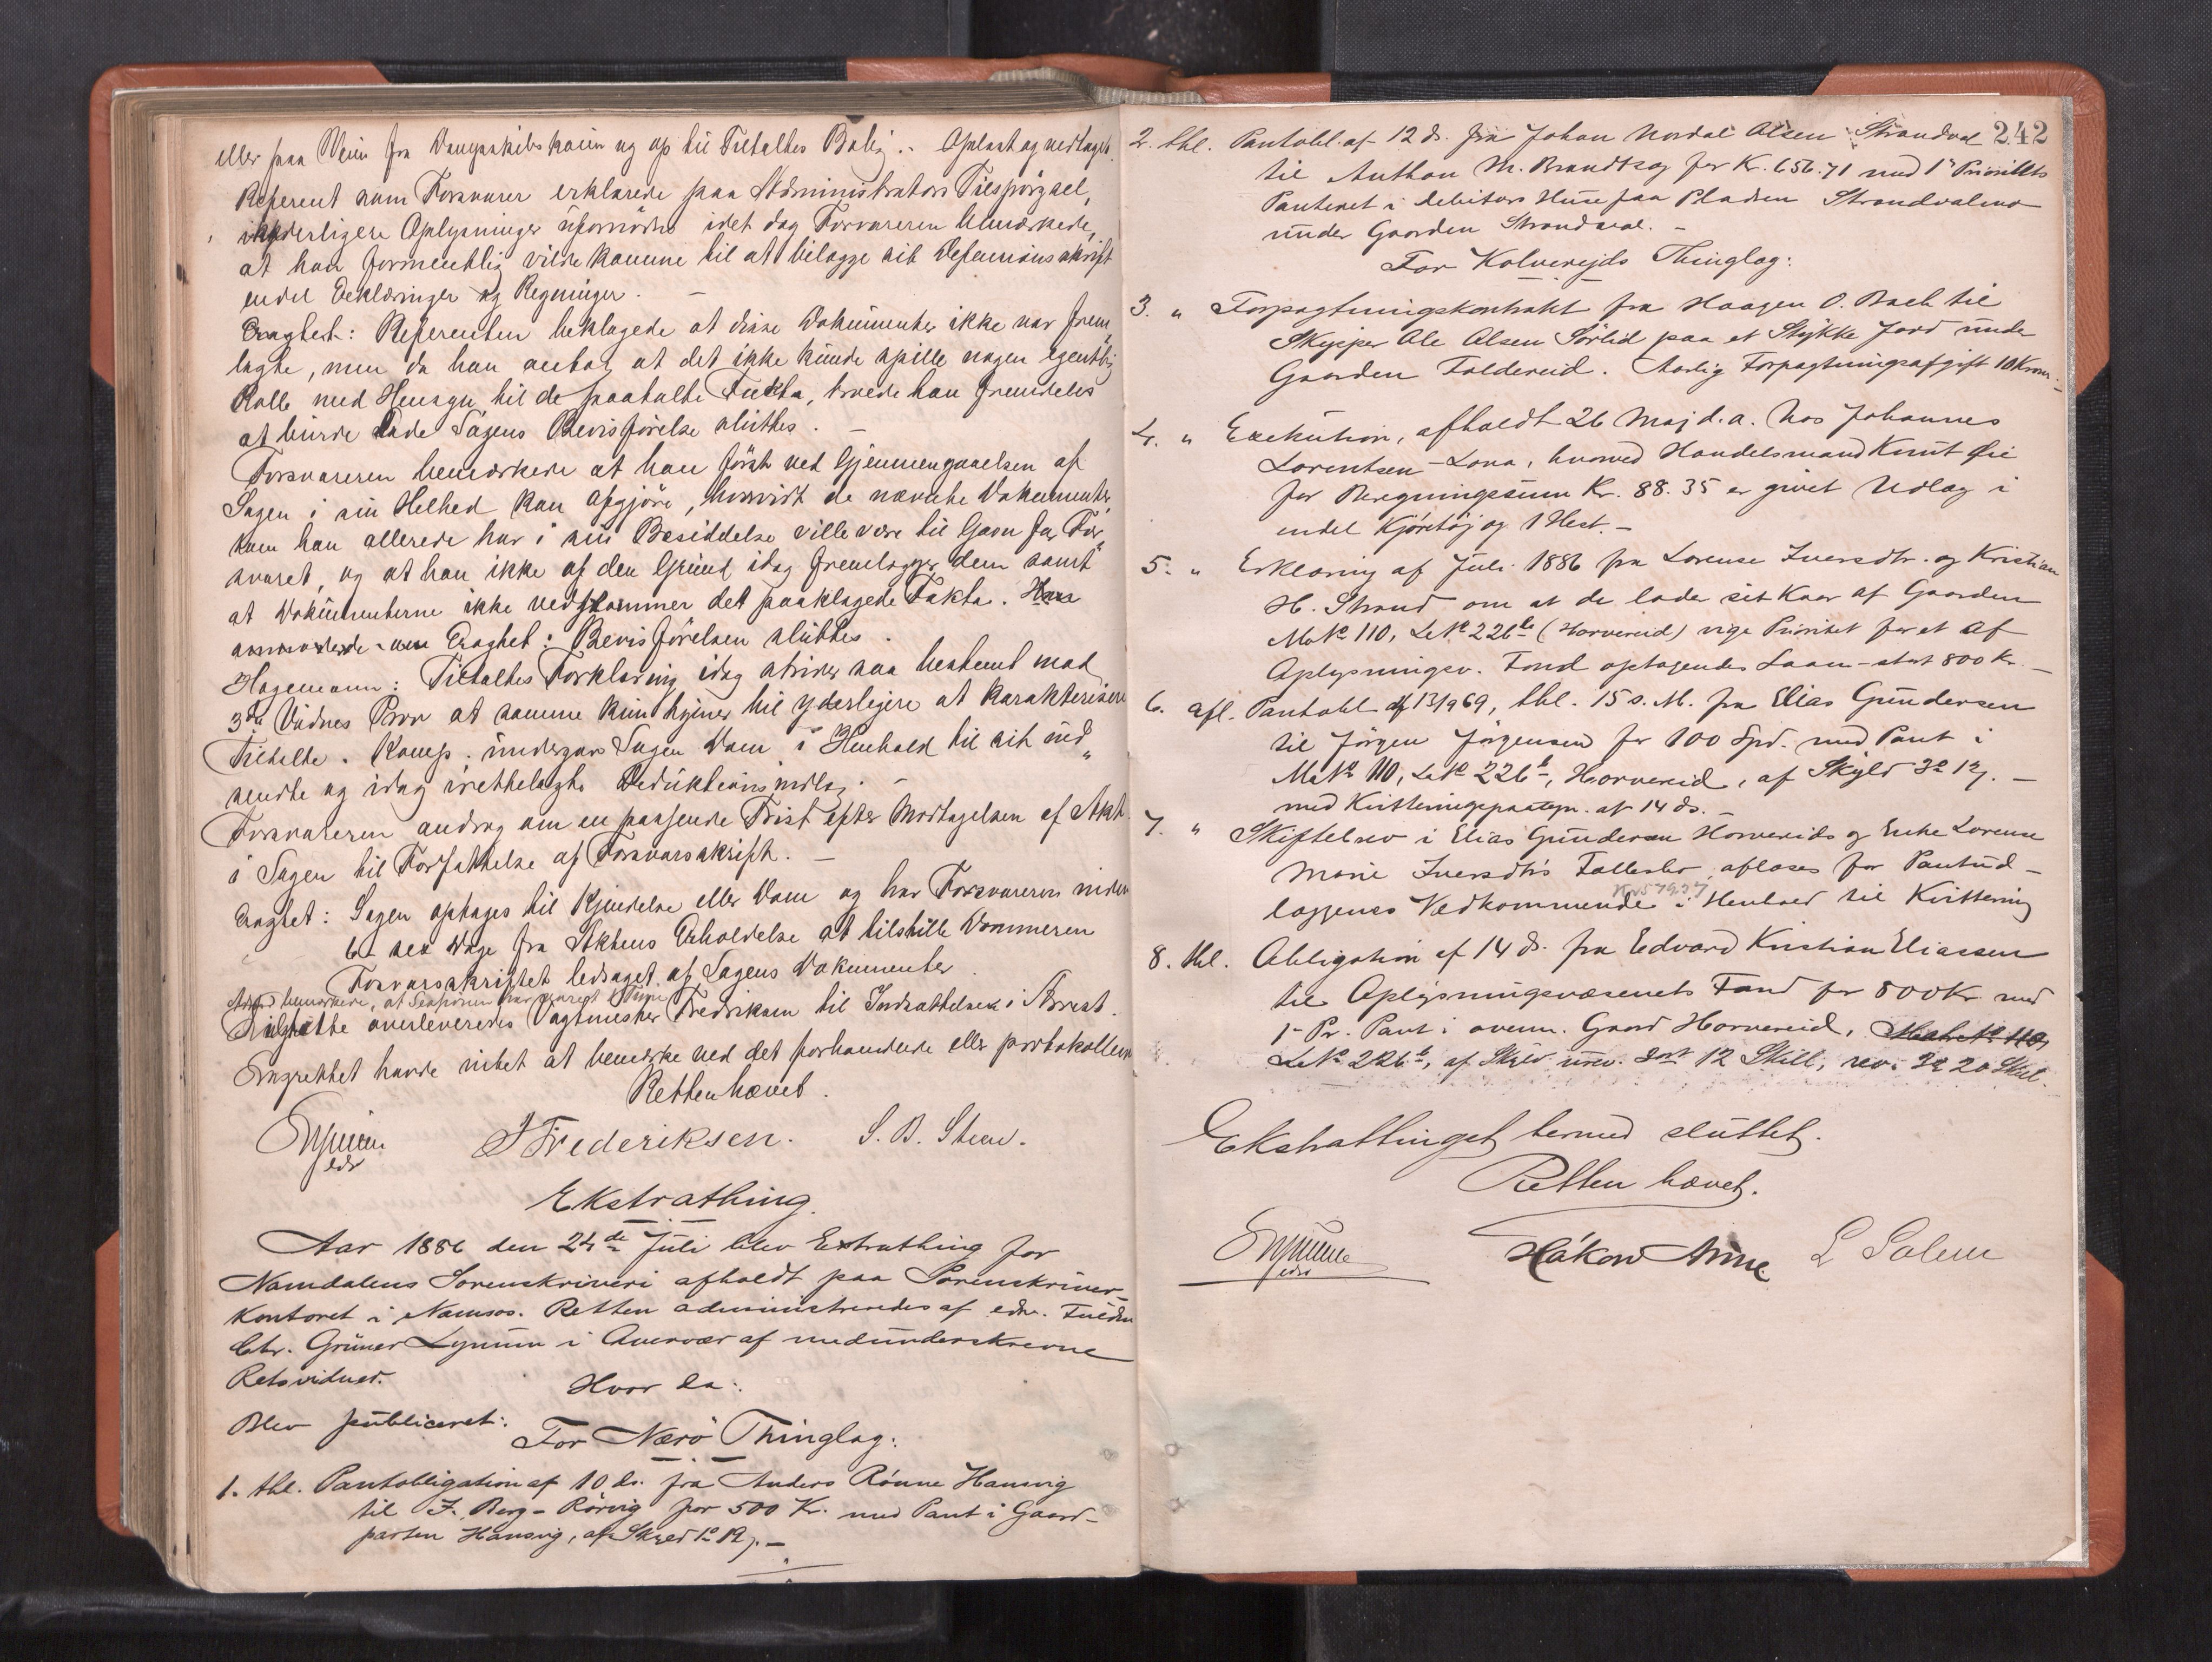 eller paa Veien fra Dampskibskaien og op til Tiltaltes Bolig. - Oplæst og vedtaget.
Referent som Forsvarer erklærede paa Administrators Tilspørgsel,
yderligere Oplysninger ufornødne idet dog Forsvareren bemærkede,
at han formentlig vilde komme til at bilægge sit Defensionsskrift
endel Erklæringer og Regninger. -
Eragtet: Referenten beklagede at disse Dokumenter ikke var frem„
lagte, men da han antog at det ikke kunde spille nogen egentlig
Rolle med Hensyn til de paatalte Fakta, troede han fremdeles
at burde lade Sagens Bevisførelse sluttes. -
Forsvareren bemærkede at han først ved Gjennemgaaelsen af
Sagen i sin Helhed kan afgjøre, hvorvidt de nævnte Dokumenter,
som han allerede har i sin Besiddelse ville være til Gavn for For„
svaret, og at han ikke af den Grund idag fremlægger dem samt
at Dokumenterne ikke vedkommer det paaklagede Fakta. Han
Eragtet: Bevisførelsen sluttes.
Hagemann: Tiltaltes Forklaring idag strider saa bestemt mod
3de Vidnes Prov at samme kun tjener til yderligere at karakterisere
Tiltalte. Komp. undergav Sagen Dom i Henhold til sit ind„
sendte og idag irettelagte Deduktionsindlæg. -
Forsvareren androg om en passende Frist efter Modtagelsen af Akt.
i Sagen til Forfattelse af Forsvarsskrift. -
Eragtet: Sagen optages til Kjendelse eller Dom og har Forsvareren inden
6 sex Dage fra Aktens Erholdelse at tilstille Dommeren
Forsvarsskriftet ledsaget af Sagens Dokumenter.
bemærkede, at Sessionen har varet 1 Time
Tiltalte overleveredes Vagtmester Fredriksen til Indsættelse i Arrest.
Lagrettet havde intet at bemærke ved det forhandlede eller protokollerede
Retten hævet.
edsv
I Frederiksen. S. B. Steen.
Ekstrathing.
Aar 1886 den 24de Juli blev Extrathing for
Namdalens Sorenskriveri afholdt paa Sorenskriver-
kontoret i Namsos. Retten administreredes af edsv. Fuldm
Chr. Grüner Lynum i Overvær af medunderskrevne
Retsvidner.
Hvor da:
Blev publiceret:
For Nærö Thinglag:
1. thl. Pantobligation af 10 ds. fra Anders Rönne Hansvig
til F. Berg - Rörvig for 500 Kr. med Pant i Gaard-
parten Hansvig, af Skyld 1o 12j. -
242
2. thl. Pantobl. af 12 ds. fra Johan Nordal Olsen Strandval
til Anthon M. Brandtzæg for Kr. 656.71 med 1ste Prioritets
Panteret i debitors Huse paa Pladsen Strandvalmo
under Gaarden Strandval. -
For Kolvereids Thinglag:
3. „ Forpagtningskontrakt fra Haagen O. Bach til
Skipper Ole Olsen Sörlid paa et Stykke Jord under
Gaarden Foldereid. Aarlig Forpagtningsafgift 10 Kroner. -
4. „ Exekution, afholdt 26 Maj d. a. hos Johannes
Lorentsen - Lona, hvorved Handelsmand Knut Øie
for Beregningssum Kr. 88.35 er givet Udlæg i
endel Kjöretöj og 1 Hest. -
5. „ Erklæring af Juli 1886 fra Lorense Iversdtr. og Kristian
H. Strand om at de lader sit Kaar af Gaarden
Mo No 110, Le No 226b (Horvereid) vige Prioritet for et af
Oplysningsv. Fond optagendes Laan - stort 800 Kr. -
6. afl. Pantobl. af 13/9 69, thl. 15 s. M. fra Elias Gundersen
til Jörgen Jörgensen for 100 Spd. med Pant i
M No 110, Le No 226b, Horvereid, af Skyld 3o 12j. -
med Kvitteringspaategn. af 14 ds. -
7. „ Skiftebrev i Elias Gundersen Horvereids og Enke Lorense
Marie Iversdtr's Fællesbo, aflæses for Pantud-
læggenes Vedkommende i Henhold til Kvittering
8. thl. Obligation af 14 ds. fra Edvard Kristian Eliassen
til Oplysningsvæsenets Fond for 800 Kr. med
1ste Pr. Pant i ovenn. Gaard Horvereid, Matr. No 110,
Le No 226b, af Skyld urev. 3ort 12 Skill, rev. 3o 20 Skil.
Ekstrathinget hermed sluttet.
Retten hævet.
edsv
Håkon Mine L Salen